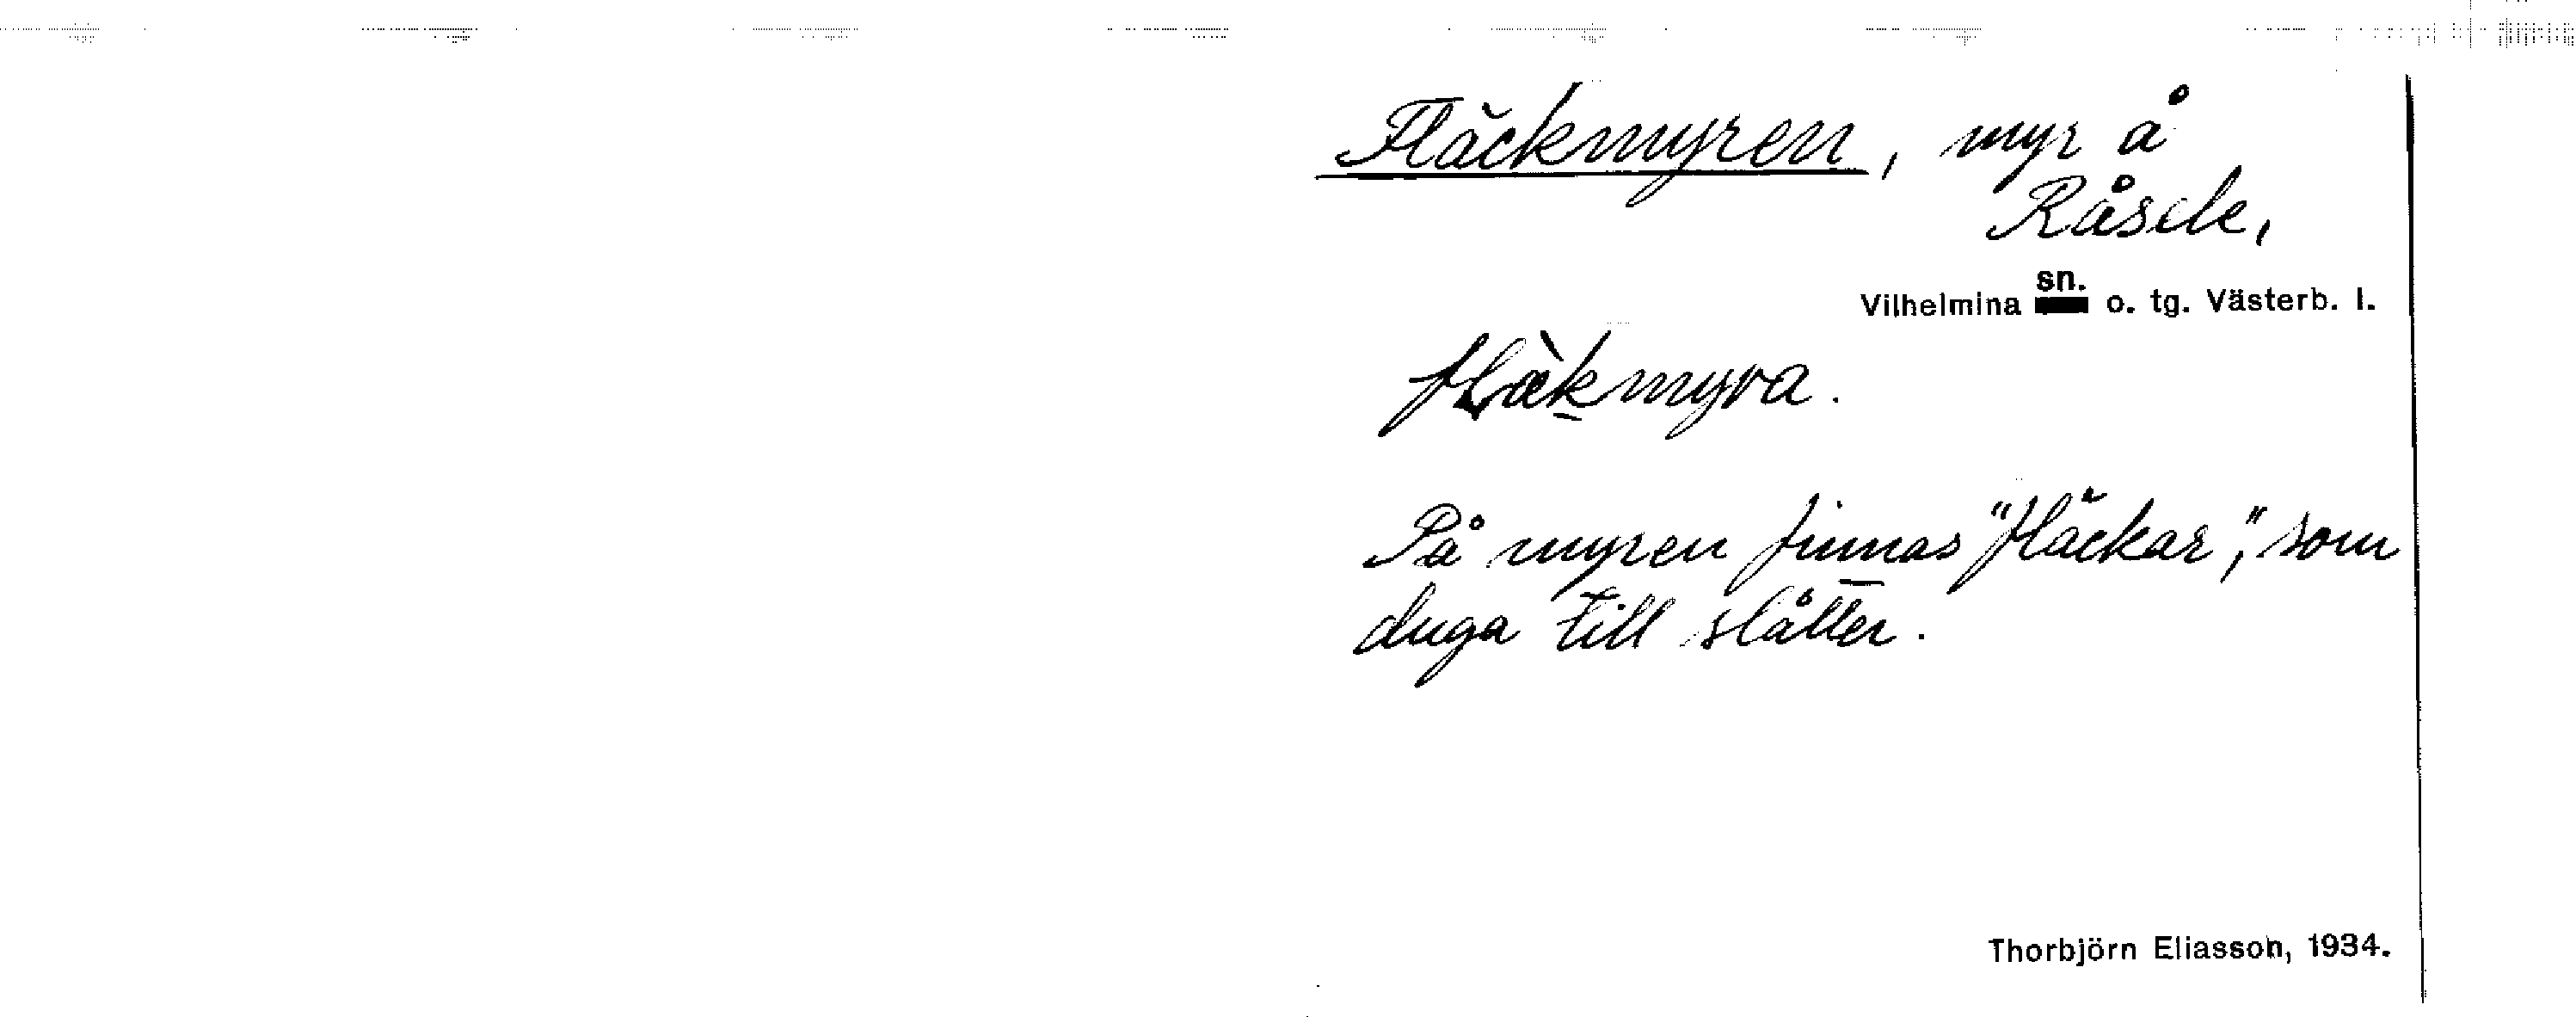 Fläckmyren, myr å
Råsele,
sn.
Vilhelmina o. tg. Västerb. l.
flæ̀kmyra.
På myren finnas "fläckar", som
duga till slåtter.
Thorbjörn Eliasson, 1934.